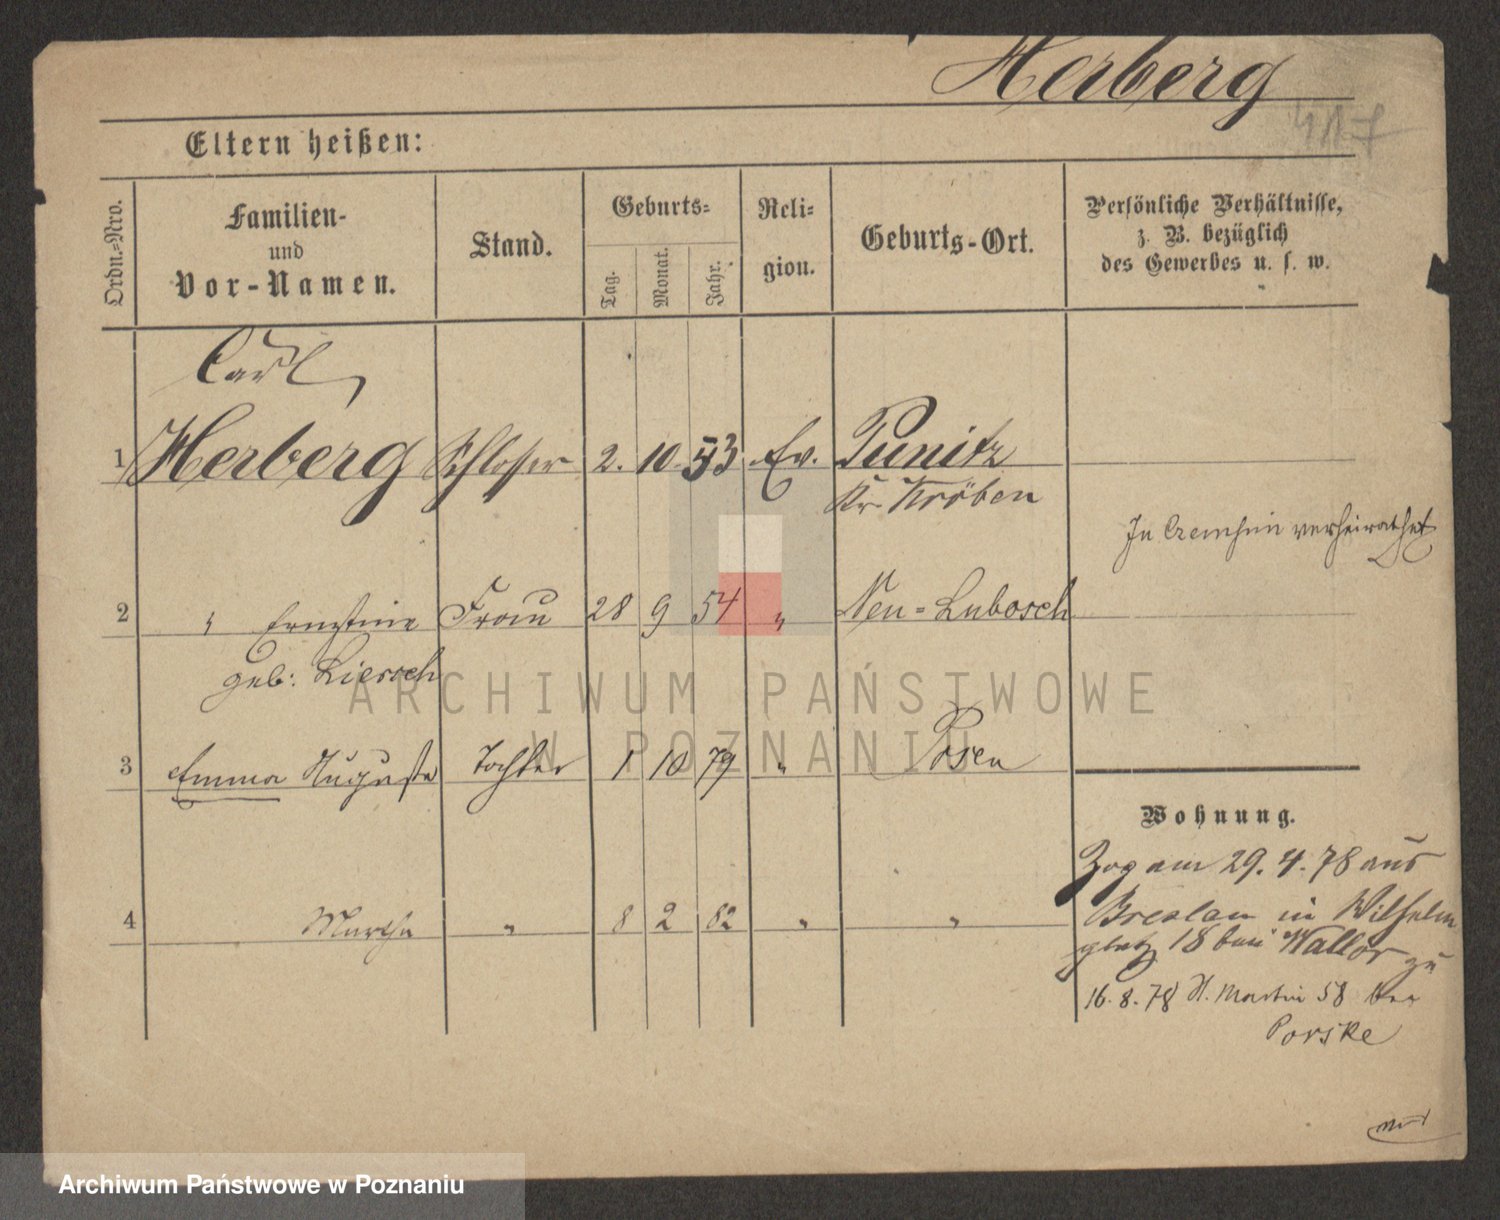 Herberg
417
Eltern heißen:
Ordn.=Nro.
Familien-
und
Vor-Namen.
Stand.
Geburts=
Tag.
Monat.
Jahr.
Reli=
gion.
Geburts-Ort.
Persönliche Verhältnisse,
z. B. bezüglich
des Gewerbes u. s. w.
Carl
1 Herberg Schlosser 2. 10. 53 Ev. Punitz
Kr. Kröben
In verheirathet
2 " Ernestine Frau 28 9 54 " Neu=Lubosch
geb: Liersch
ARCHIWUM PAŃSTWOWE
W POZNANIU
3 Emma Auguste Tochter 1 10 79 " Posen
Wohnung.
Zog am 29. 4. 78 aus
4 Martha " 8 2 82 " "
Breslau in Wilhelm
platz 18 bei zu
16. 8. 78 St. Martin 58 bei
Porske
Archiwum Państwowe w Poznaniu